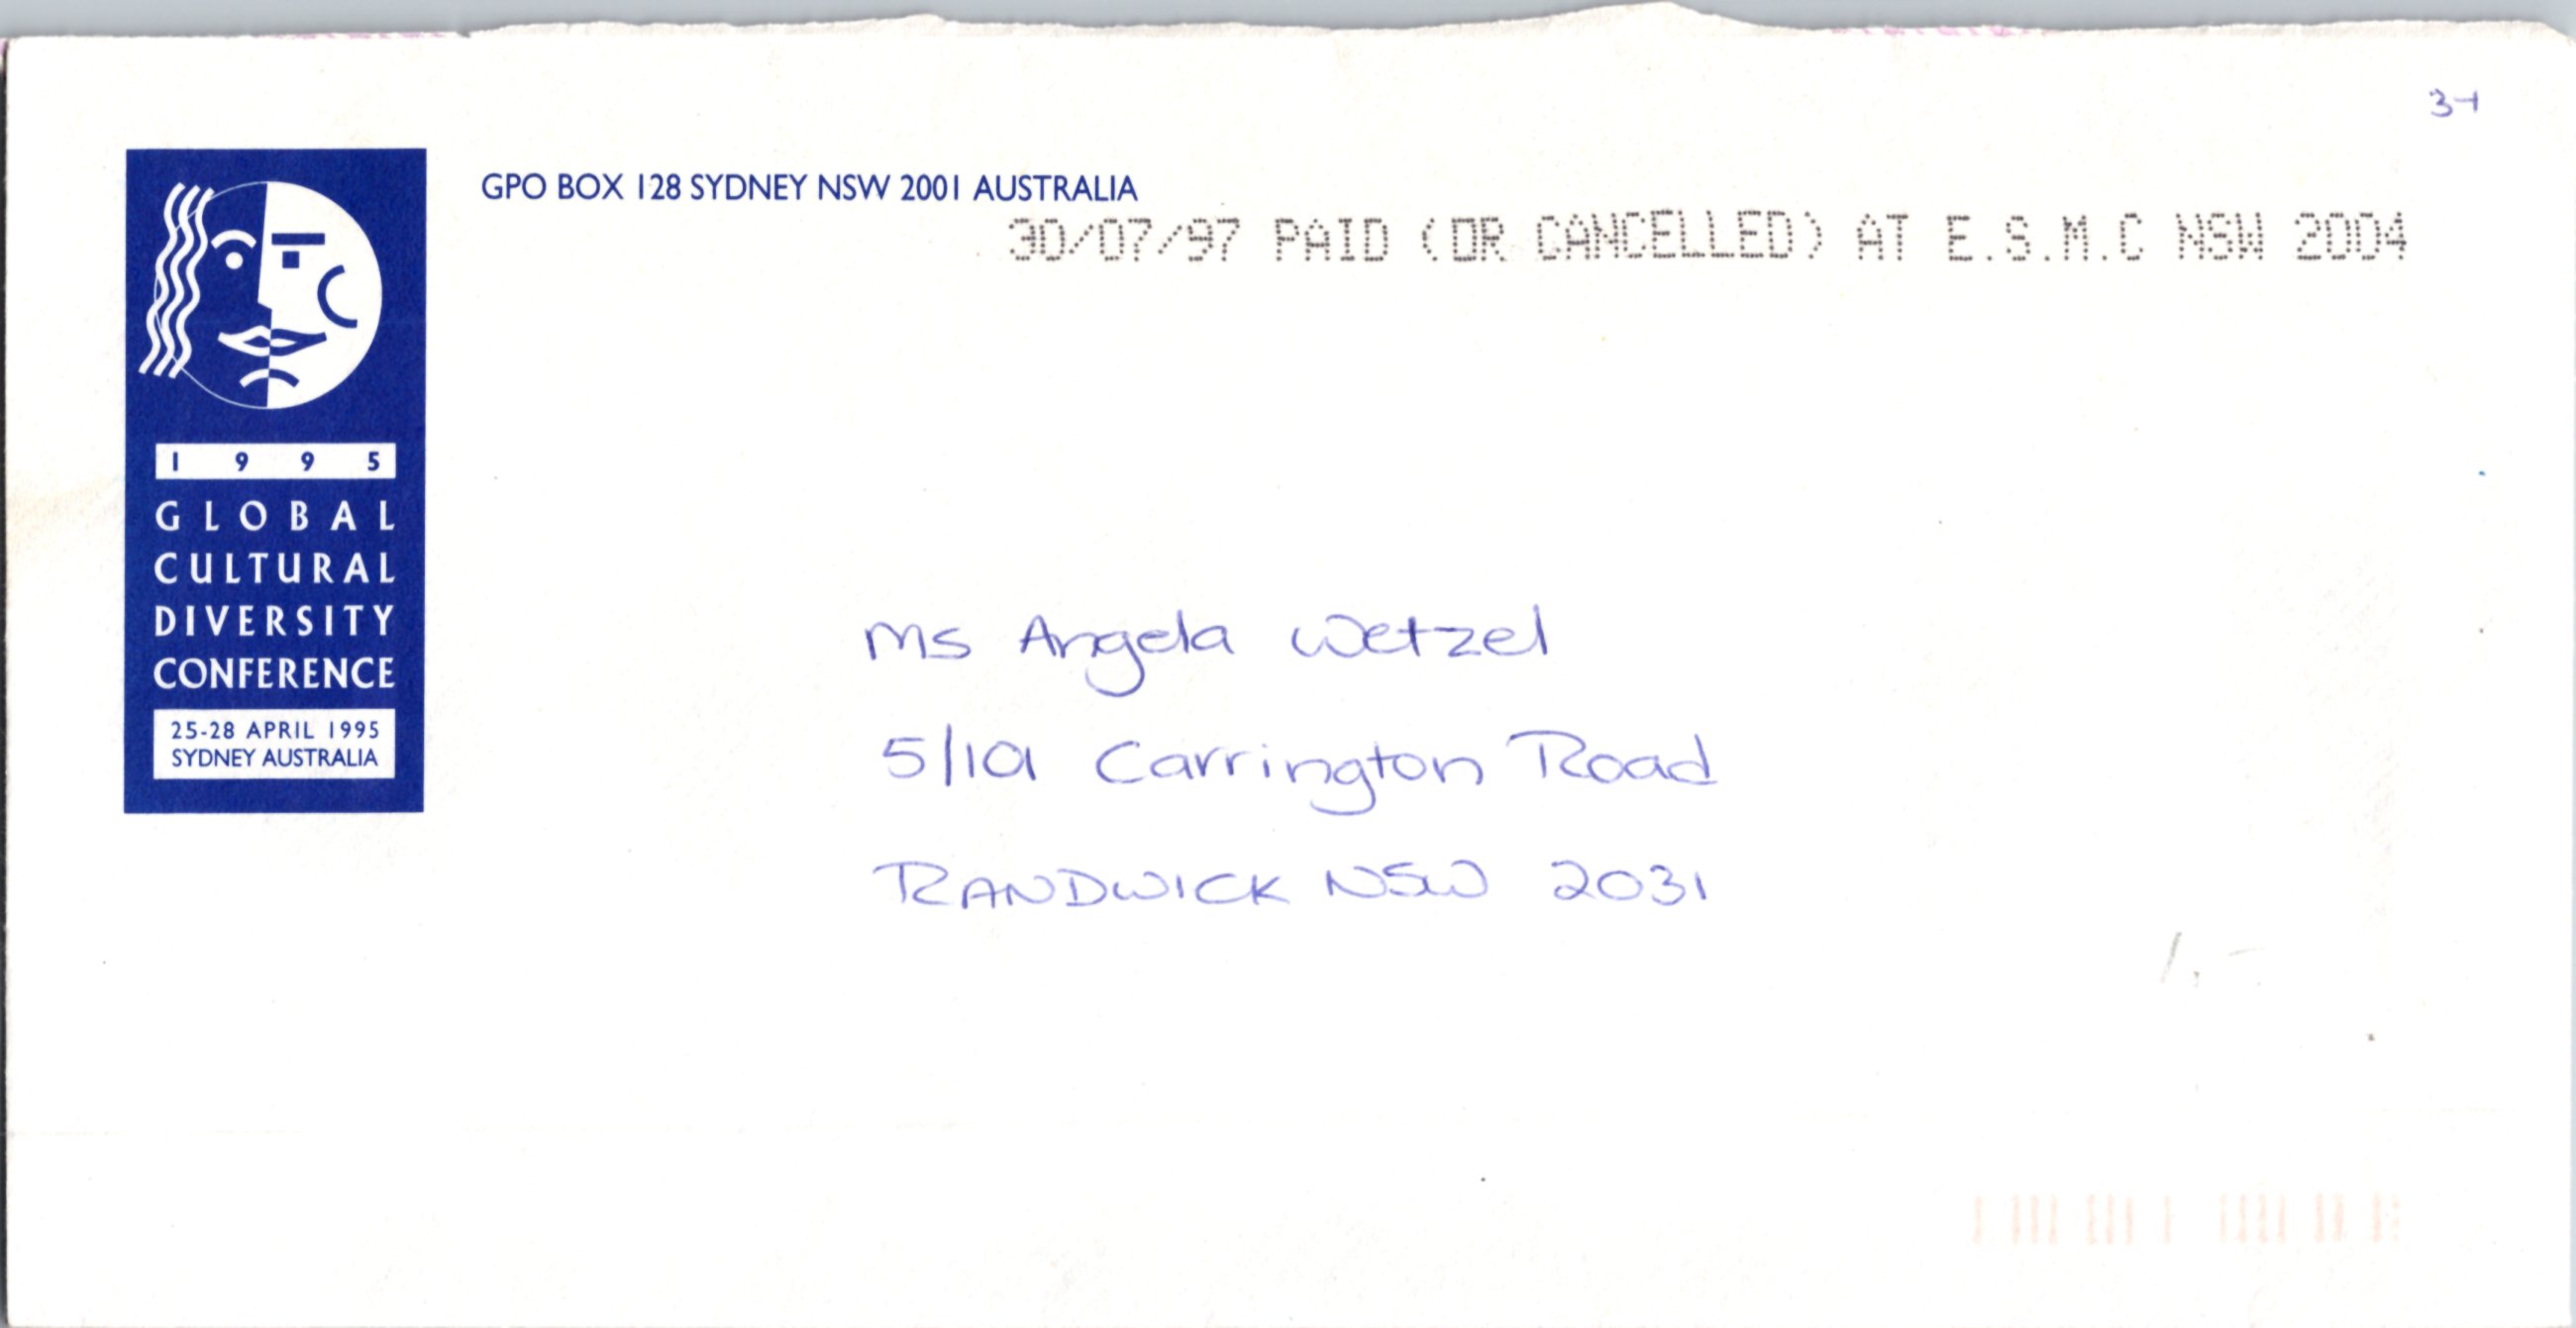 3-1
GPO BOX 128 SYDNEY NSW 2001 AUSTRALIA
30/07/97 PAID (OR CANCELLED) AT E.S.M.C NSW 2004
1995
GLOBAL
CULTURAL
DIVERSITY
CONFERENCE
25-28 APRIL 1995
SYDNEY AUSTRALIA
Ms Angela Wetzel
5/101 Carrington Road
RANDWICK NSW 2031
1,-